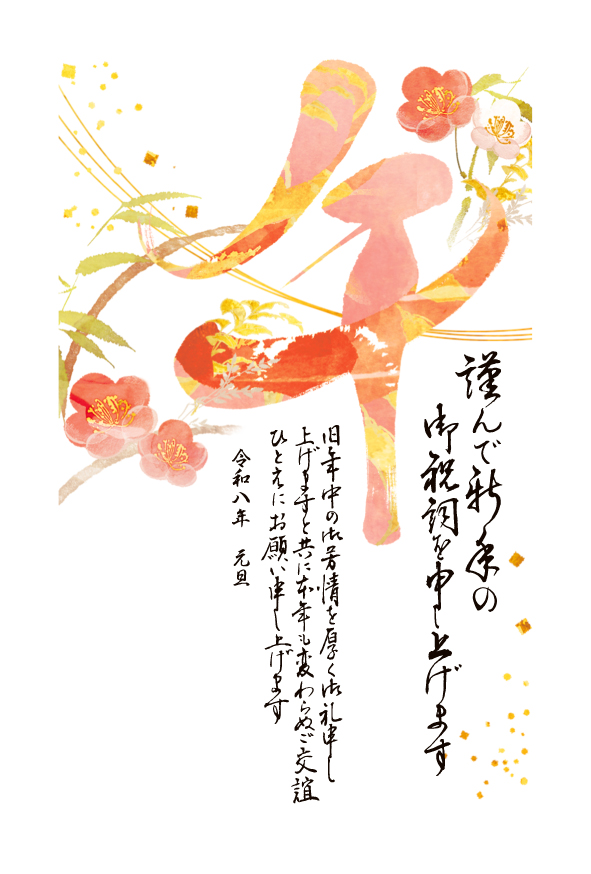 午
謹んで新年の
御祝詞を申し上げます
旧年中の御芳情を厚く御礼申し
上げますと共に本年も変わらぬご交誼
ひとえにお願い申し上げます
令和八年 元旦